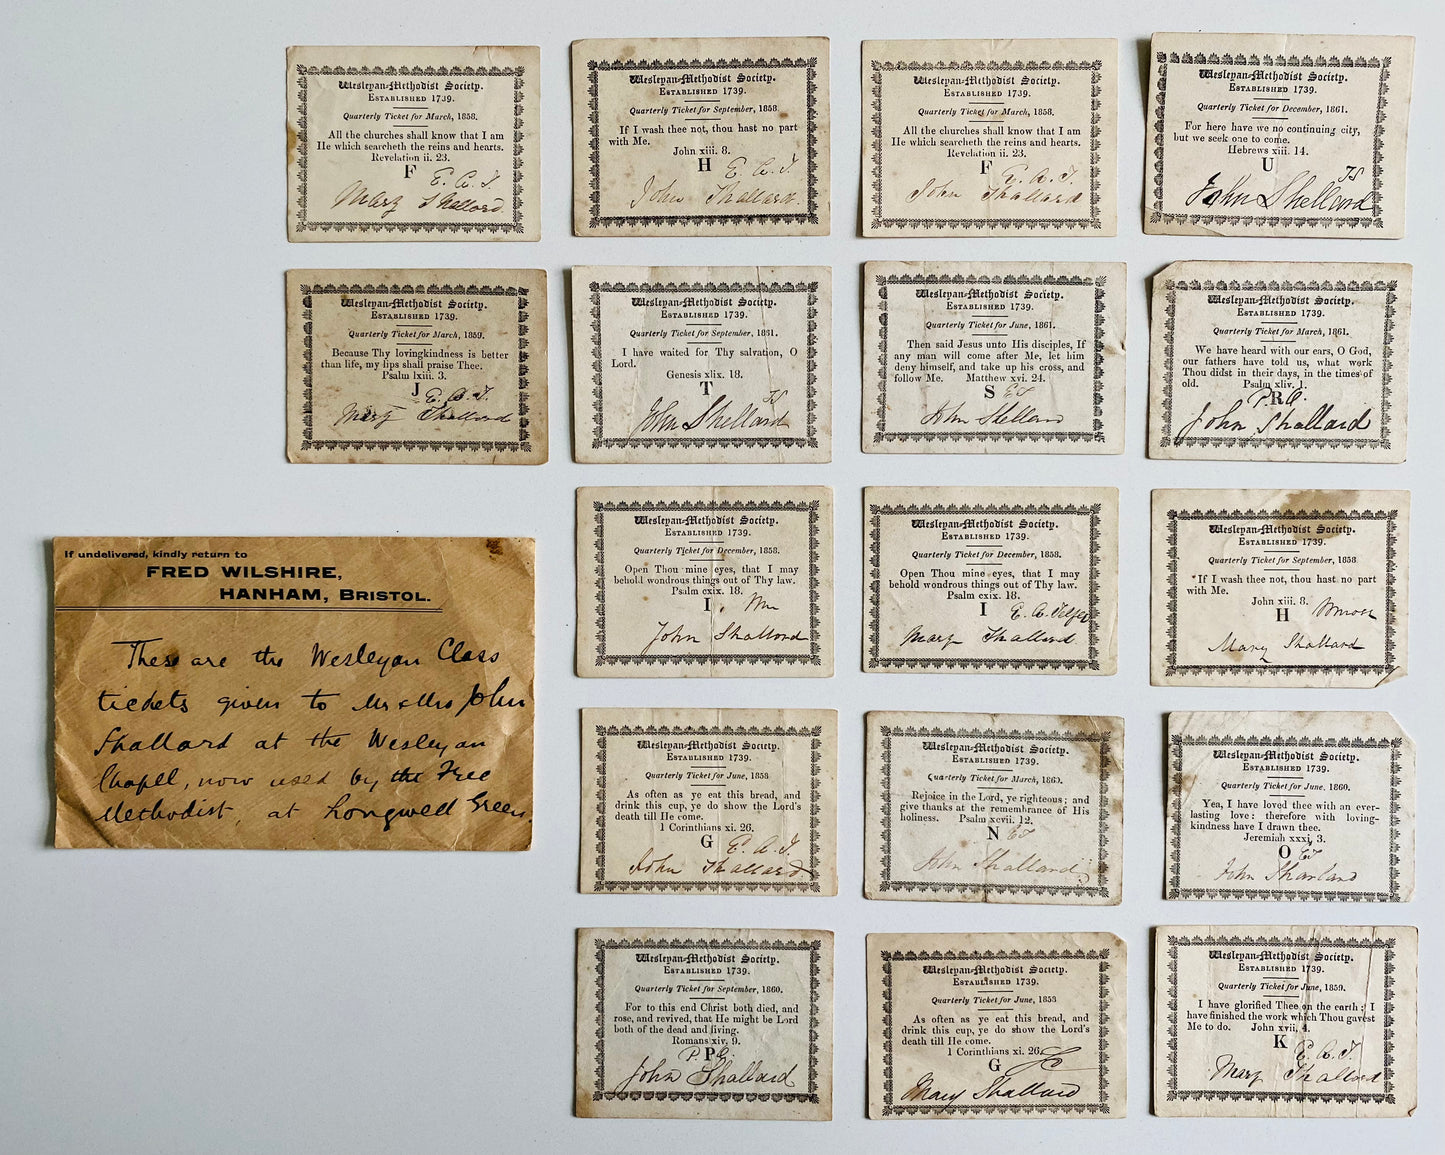 Wesleyan-Methodist Society.
ESTABLISHED 1739.
Quarterly Ticket for March, 1858.
All the churches shall know that I am
He which searcheth the reins and hearts.
Revelation ii. 23.
F
E. A. T.
Mary Shallard.
Wesleyan-Methodist Society.
ESTABLISHED 1739.
Quarterly Ticket for September, 1858.
If I wash thee not, thou hast no part
with Me.
John xiii. 8.
H
E. A. T.
John Shallard.
Wesleyan-Methodist Society.
ESTABLISHED 1739.
Quarterly Ticket for March, 1858.
All the churches shall know that I am
He which searcheth the reins and hearts.
Revelation ii. 23.
F
E. A. T.
John Shallard
Wesleyan-Methodist Society.
ESTABLISHED 1739.
Quarterly Ticket for December, 1861.
For here have we no continuing city,
but we seek one to come.
Hebrews xiii. 14.
U
TS
John Shellard
Wesleyan-Methodist Society.
ESTABLISHED 1739.
Quarterly Ticket for March, 1859.
Because Thy lovingkindness is better
than life, my lips shall praise Thee.
Psalm lxiii. 3.
J
E. A. T.
Mary Shallard
Wesleyan-Methodist Society.
ESTABLISHED 1739.
Quarterly Ticket for September, 1861.
I have waited for Thy salvation, O
Lord.
Genesis xlix. 18.
T
TS
John Shellard
Wesleyan-Methodist Society.
ESTABLISHED 1739.
Quarterly Ticket for June, 1861.
Then said Jesus unto His disciples, If
any man will come after Me, let him
deny himself, and take up his cross, and
follow Me. Matthew xvi. 24.
S ET
John
Wesleyan-Methodist Society.
ESTABLISHED 1739.
Quarterly Ticket for March, 1861.
We have heard with our ears, O God,
our fathers have told us, what work
Thou didst in their days, in the times of
old. Psalm xliv. 1.
R
John Shallard
Wesleyan-Methodist Society.
ESTABLISHED 1739.
Quarterly Ticket for December, 1858.
Open Thou mine eyes, that I may
behold wondrous things out of Thy law.
Psalm cxix. 18.
I
John Shallard
Wesleyan-Methodist Society.
ESTABLISHED 1739.
Quarterly Ticket for December, 1858.
Open Thou mine eyes, that I may
behold wondrous things out of Thy law.
Psalm cxix. 18.
I E. A. Telfer
Mary Shallard
Wesleyan-Methodist Society.
ESTABLISHED 1739.
Quarterly Ticket for September, 1858
If I wash thee not, thou hast no part
with Me.
John xiii. 8.
H
Mary Shallard
If undelivered, kindly return to
FRED WILSHIRE,
HANHAM, BRISTOL.
These are the Wesleyan Class
tickets given to Mr & Mrs John
Shallard at the Wesleyan
Chapel, now used by the Free
Methodist, at Longwell Green
Wesleyan-Methodist Society.
ESTABLISHED 1739.
Quarterly Ticket for June, 1858
As often as ye eat this bread, and
drink this cup, ye do show the Lord's
death till He come.
1 Corinthians xi. 26.
G E. A. T.
John Shallard
Wesleyan-Methodist Society.
ESTABLISHED 1739.
Quarterly Ticket for March, 1860.
Rejoice in the Lord, ye righteous; and
give thanks at the remembrance of His
holiness. Psalm xcvii. 12.
N ET
John Shallard
Wesleyan-Methodist Society.
ESTABLISHED 1739.
Quarterly Ticket for June, 1860.
Yea, I have loved thee with an ever-
lasting love: therefore with loving-
kindness have I drawn thee.
Jeremiah xxxi, 3.
O ET
John Sharland
Wesleyan-Methodist Society.
ESTABLISHED 1739.
Quarterly Ticket for September, 1860.
For to this end Christ both died, and
rose, and revived, that He might be Lord
both of the dead and living.
Romans xiv. 9.
P
John Shallard
Wesleyan-Methodist Society.
ESTABLISHED 1739.
Quarterly Ticket for June, 1858
As often as ye eat this bread, and
drink this cup, ye do show the Lord's
death till He come.
1 Corinthians xi. 26.
G
Mary Shallard
Wesleyan-Methodist Society.
ESTABLISHED 1739.
Quarterly Ticket for June, 1859.
I have glorified Thee on the earth; I
have finished the work which Thou gavest
Me to do. John xvii, 4.
K E. A. T.
Mary Shallard